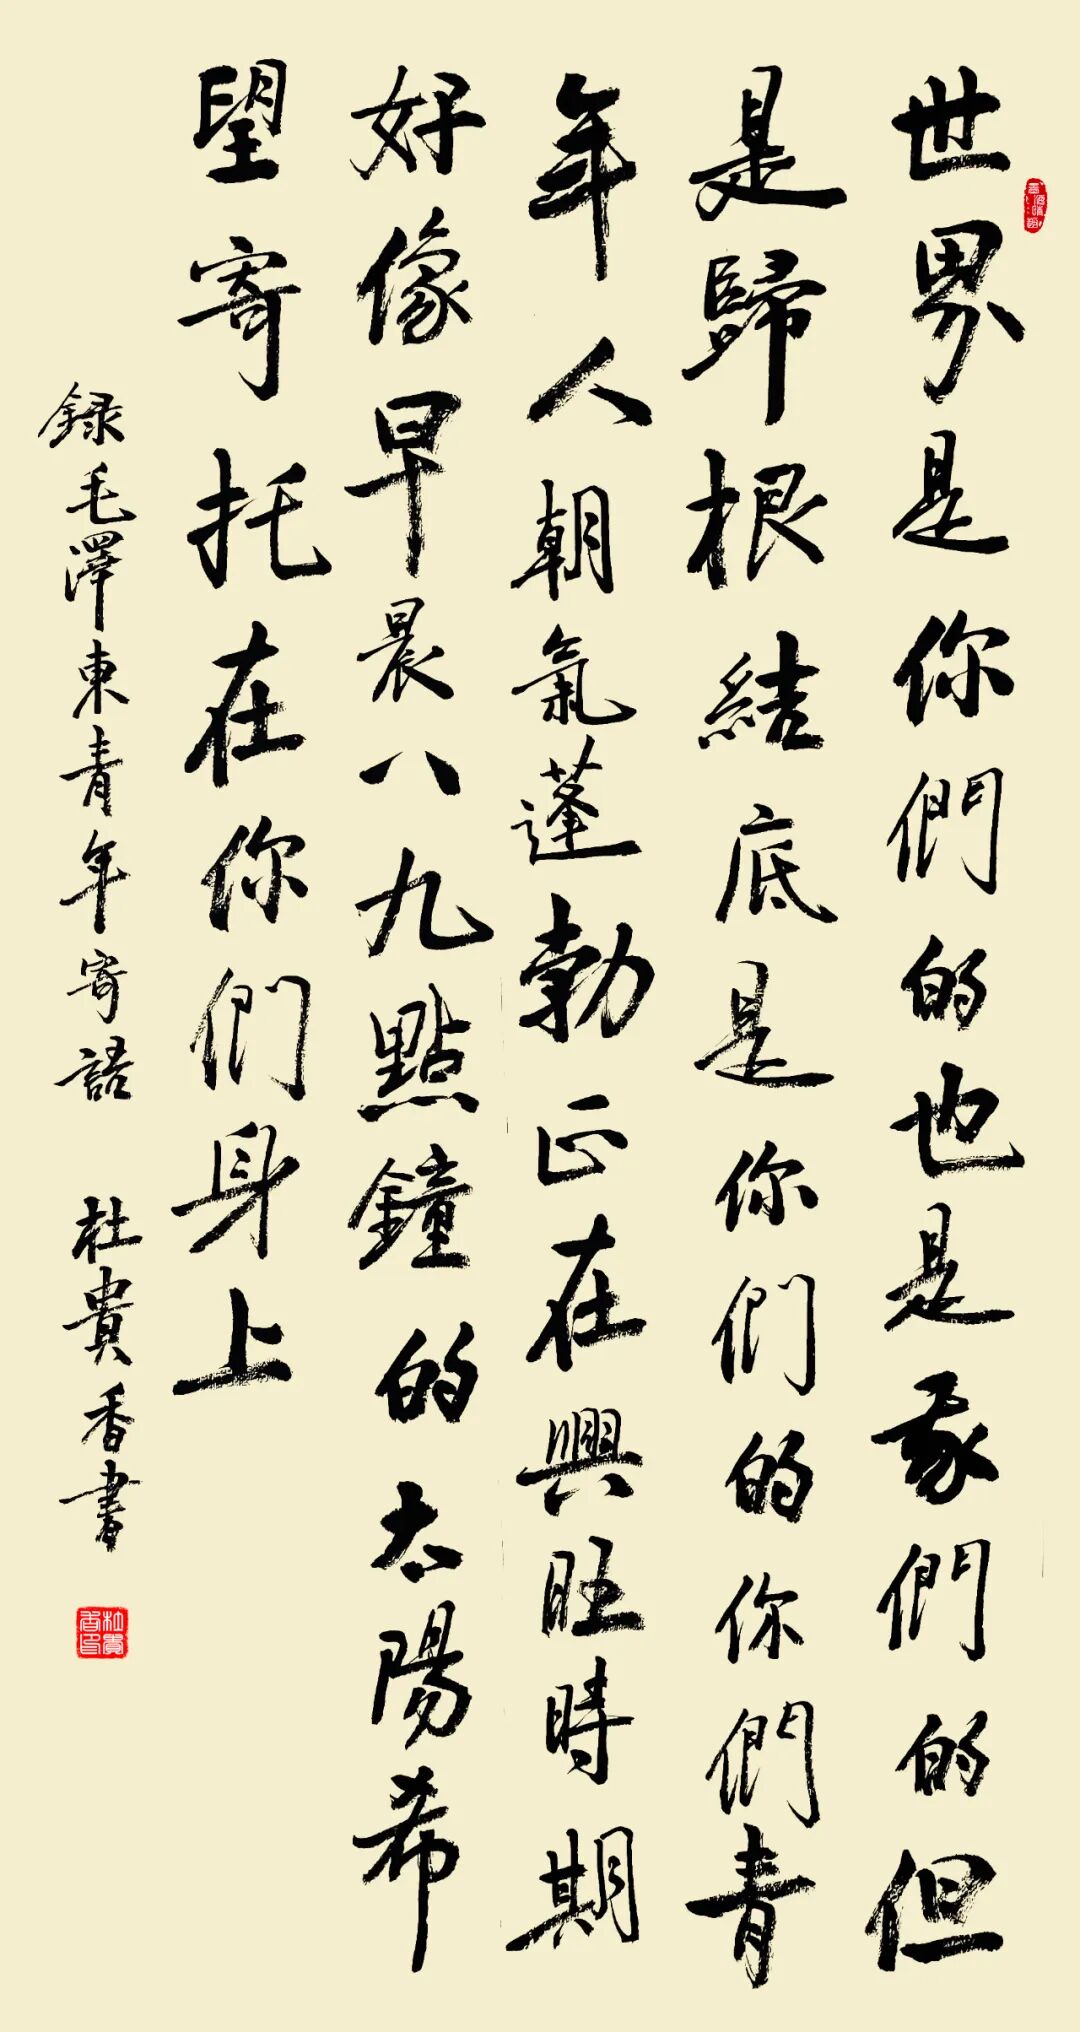 世界是你們的也是我們的但
是歸根結底是你們的你們青
年人朝氣蓬勃正在興旺時期
好像早晨八九點鐘的太陽希
望寄托在你們身上
録毛澤東青年寄語 杜貴香書
杜貴香印